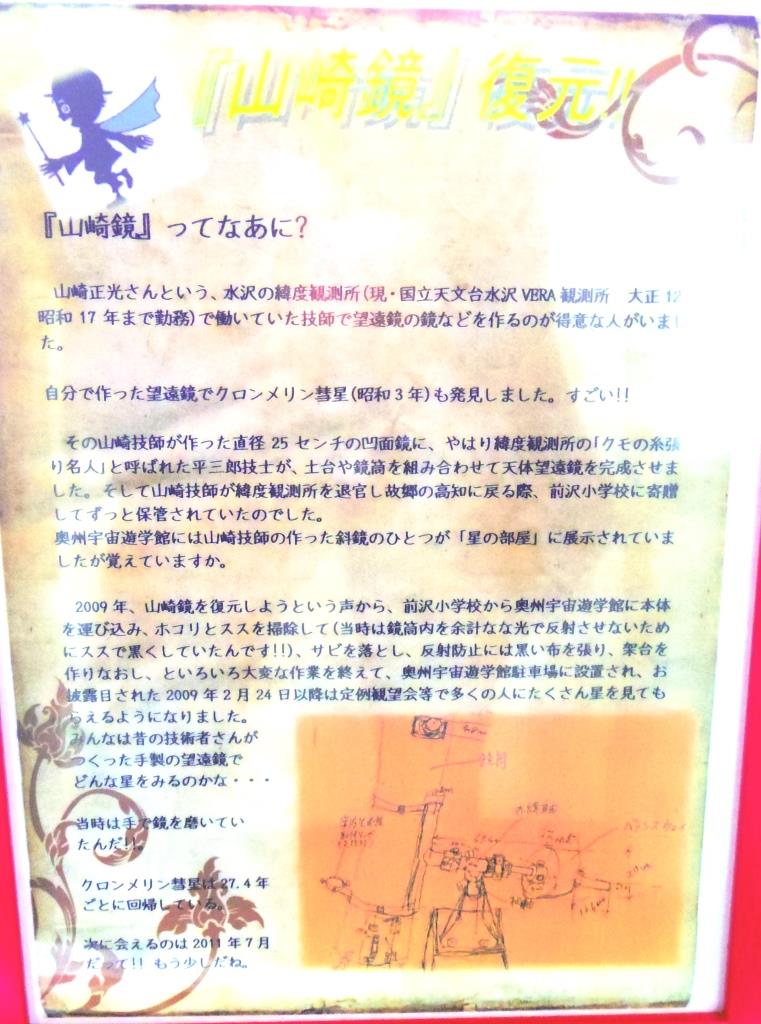 『山崎鏡』復元!!
『山崎鏡』ってなあに?
山崎正光さんという、水沢の緯度観測所(現・国立天文台水沢 VERA 観測所 大正 12
昭和 17 年まで勤務)で働いていた技師で望遠鏡の鏡などを作るのが得意な人がいまし
た。
自分で作った望遠鏡でクロンメリン彗星(昭和 3 年)も発見しました。すごい!!
その山崎技師が作った直径 25 センチの凹面鏡に、やはり緯度観測所の「クモの糸張
り名人」と呼ばれた平三郎技士が、土台や鏡筒を組み合わせて天体望遠鏡を完成させま
した。そして山崎技師が緯度観測所を退官し故郷の高知に戻る際、前沢小学校に寄贈
してずっと保管されていたのでした。
奥州宇宙遊学館には山崎技師の作った斜鏡のひとつが「星の部屋」に展示されていま
したが覚えていますか。
2009 年、山崎鏡を復元しようという声から、前沢小学校から奥州宇宙遊学館に本体
を運び込み、ホコリとススを掃除して(当時は鏡筒内を余計なな光で反射させないため
にススで黒くしていたんです!!)、サビを落とし、反射防止には黒い布を張り、架台を
作りなおし、といろいろ大変な作業を終えて、奥州宇宙遊学館駐車場に設置され、お
披露目された 2009 年 2 月 24 日以降は定例観望会等で多くの人にたくさん星を見ても
らえるようになりました。
みんなは昔の技術者さんが
つくった手製の望遠鏡で
どんな星をみるのかな・・・
当時は手で鏡を磨いてい
たんだ!!。
クロンメリン彗星は 27.4 年
ごとに回帰している。
次に会えるのは 2011 年 7 月
だって!! もう少しだね。
鏡筒
バランスウェイ